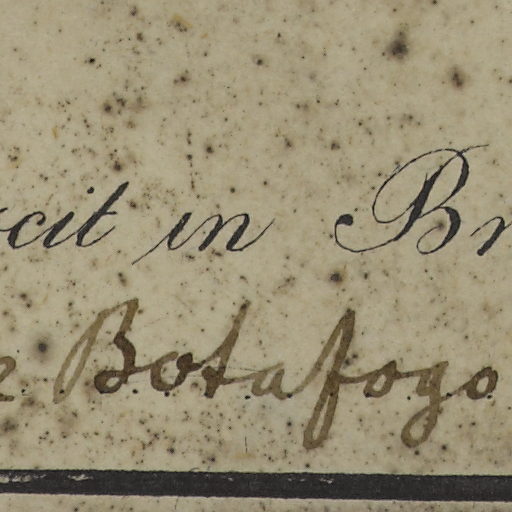 cit in Br
Botafogo